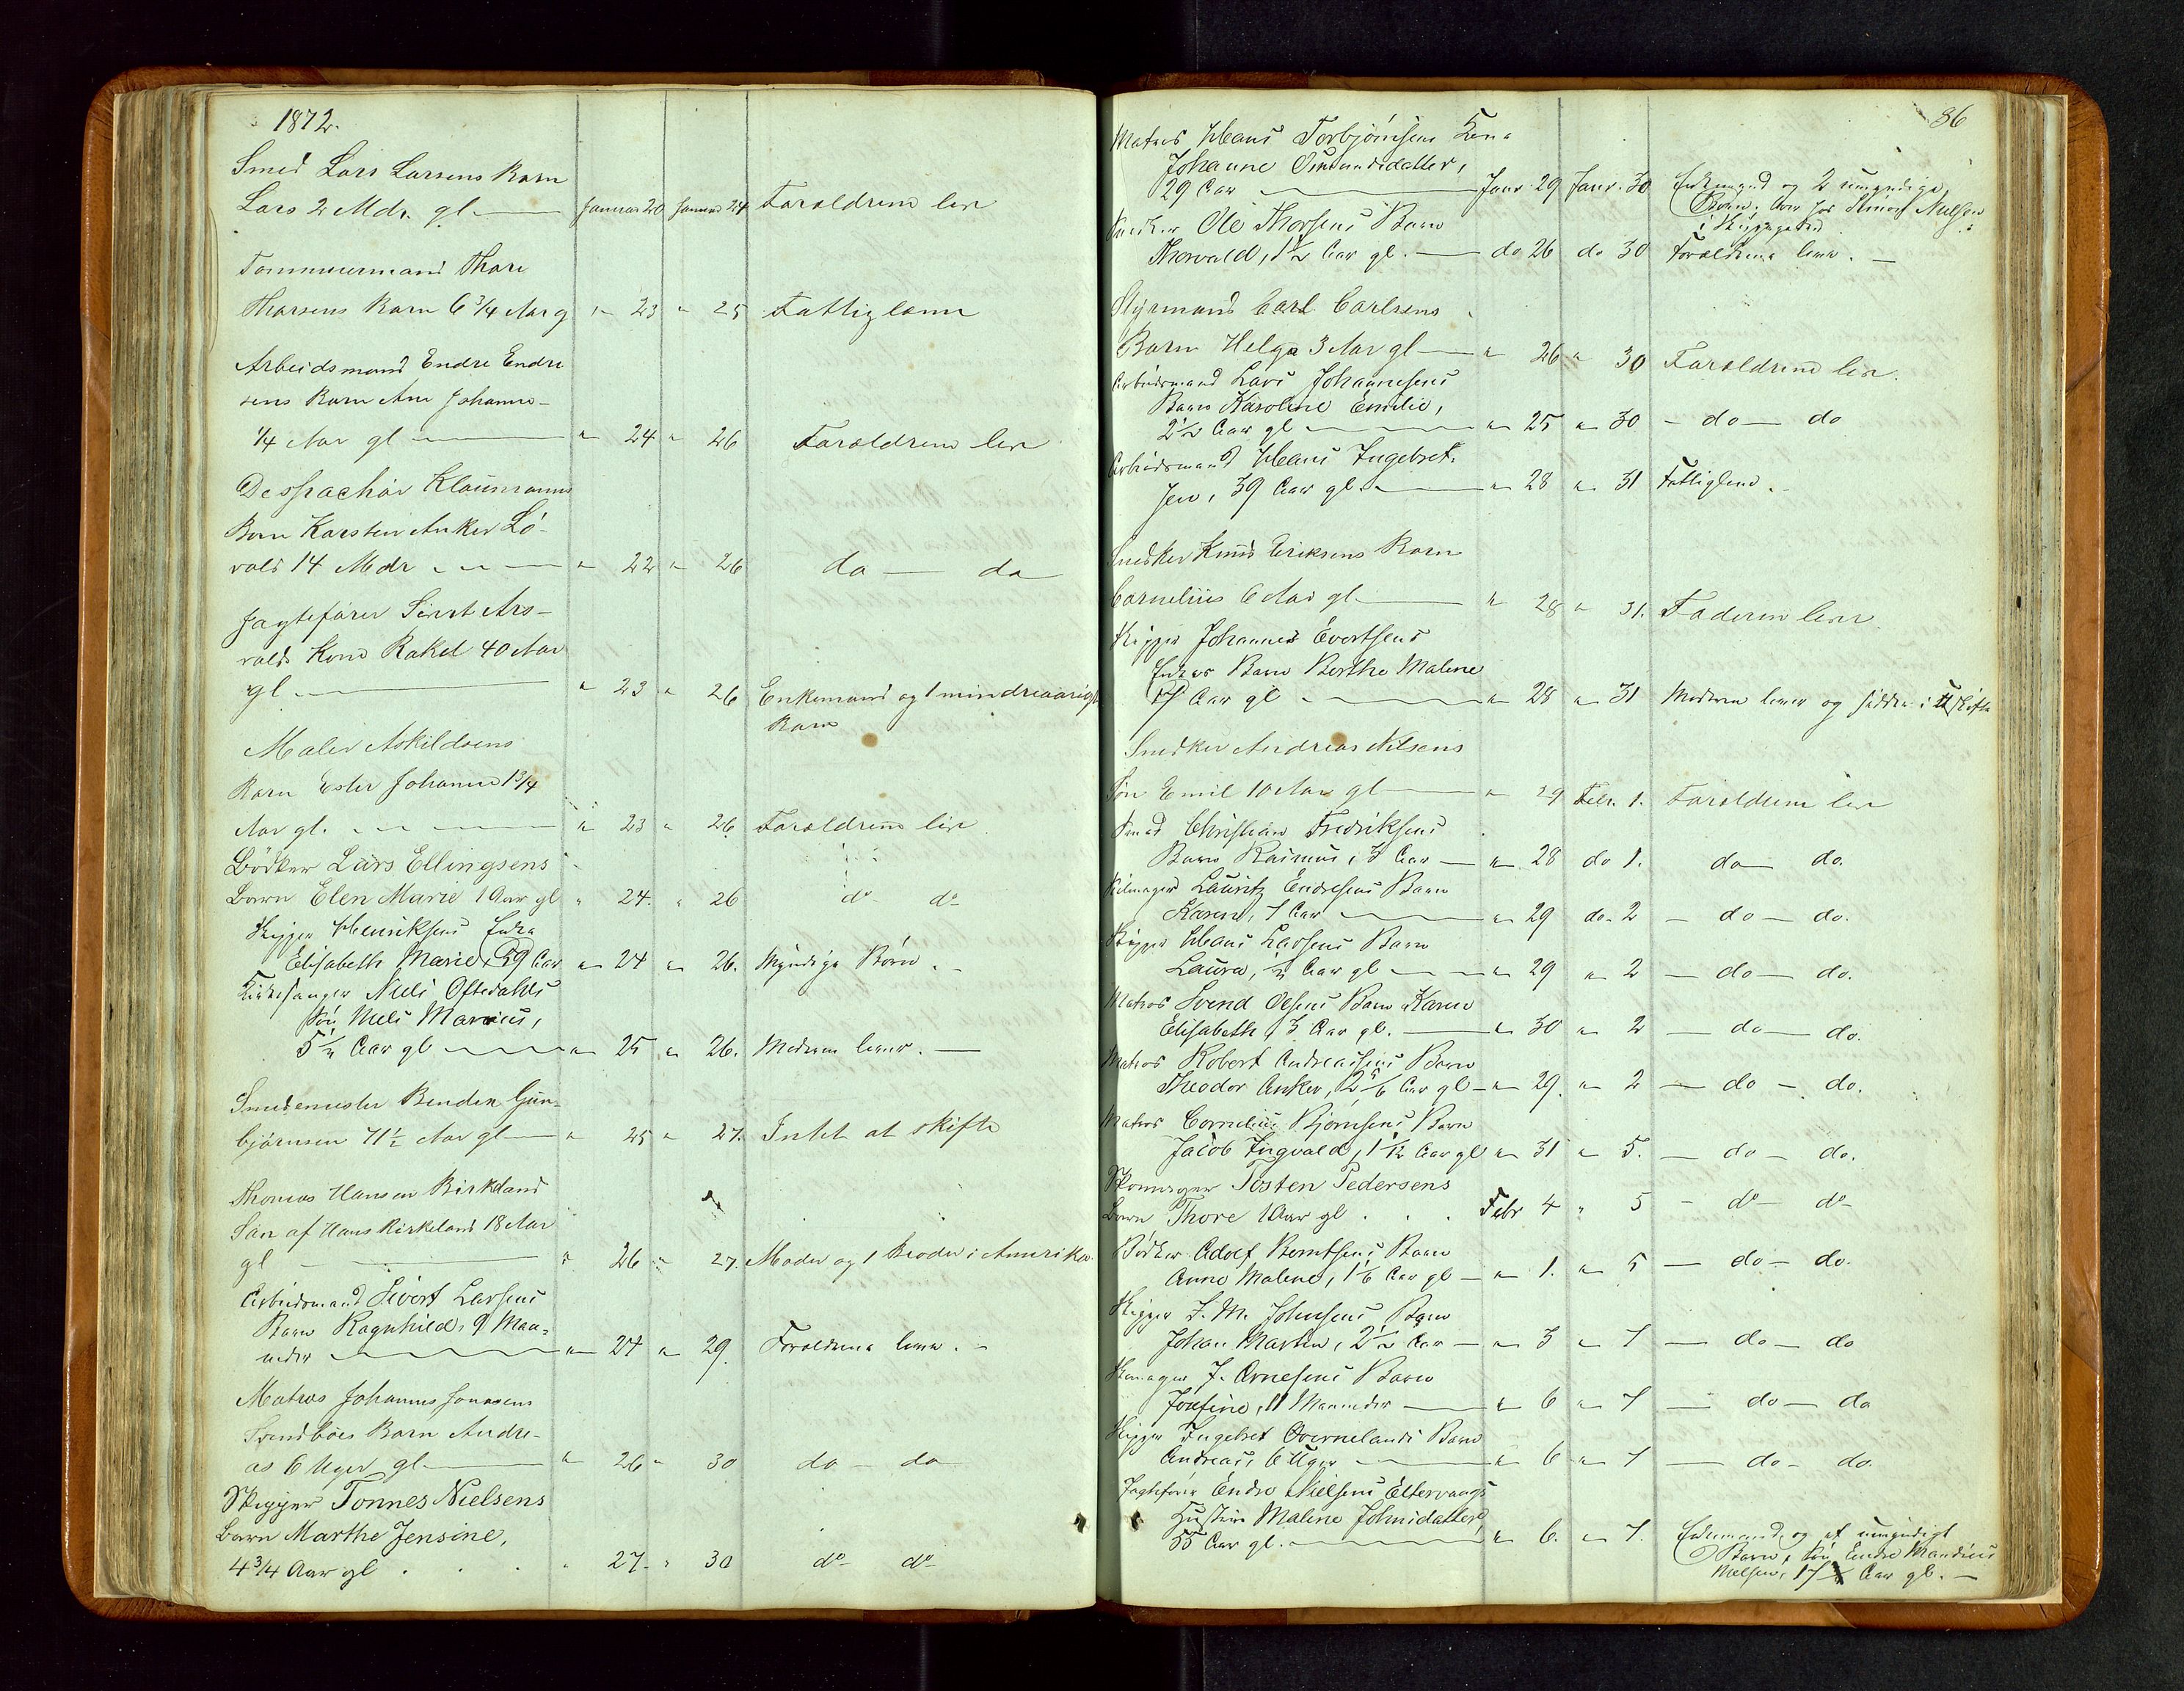 1872.
Smed Lars Larsens Barn
Lars 2 Mdr. gl. Januar 20 Januar 24 Foræeldrene lever
Tømmermand Thore
Thorsens Barn 6 3/4 Aar g " 23 " 25 Fattiglem
Arbeidsmand Endre Endre
sens Barn Ane Johanne
1/4 Aar gl " 24 " 26 Forældrene lever
Despachør Klausmanns
Barn Karsten Anker Lö-
vold 14 Mdr " 22 " 26 do — do
Jagtefører Sivert Aro-
valds Kone Rakel 40 Aar
gl. " 23 " 26 Enkemand og 1 mindreaarigt
Barn
Maler Askildsens
Barn Ester Johanne 1 3/4
Aar gl. " 23 " 26 Forældrene lever
Bødker Lars Ellingsens
Barn Elen Marie 1 Aar gl " 24. " 26 do do
Skipper Henriksens Enke
Elisabeth Marie, 59 Aar " 24 " 26. Myndige Børn.
Kirkesanger Niels Oftedahls
Søn Niels Marius,
5 1/2 Aar gl " 25 " 26. Moderen lever.
Smedemester Bendix Gun-
bjørnsen 71 1/2 Aar gl " 25 " 27. Intet at skifte
Thomas Hansen Birkeland
Søn af Hans Birkeland 18 Aar
gl " 26 " 27. Moder og 1 Broder i Amerika
Arbeidsmand Sivert Larsens
Barn Ragnhild, 9 Maa-
neder " 27 " 29. Forældrene lever.
Matros Johannes Jonasens
Svendbøes Barn Andre-
as 6 Uger gl. " 26 " 30 do — do
Skipper Tonnes Nielsens
Barn Marthe Jensine,
4 3/4 Aar gl . . . " 27. " 30 do do
86
Matros Hans Torbjørnsens Kone
Johanne Omundsdatter,
29 Aar Janr. 29 Janr. 30 Enkemand og 2 umyndige
Børn. hos Simon Nielsen
i
Snedker Ole Thorsens Barn
Thorvald, 1 1/2 Aar gl. do 26 do 30 Forældrene lever.
Styrmand Carl Carlsens
Barn Helga 3 Aar gl " 26 " 30 Forældrene lever.
Arbeidsmand Lars Johannesens
Barn Karoline Emilie,
2 1/2 Aar gl " 25 " 30 — do — do
Arbeidsmand Hans Ingebret-
sen, 39 Aar gl. " 28 " 31 Fattiglem.
Snedker Knud Eriksens Barn
Cornelius 6 Aar gl " 28 " 31. Faderen lever.
Skipper Johannes Evertsens
Enkes Barn Berthe Malene
17 Aar gl " 28 " 31 Moderen lever og sidder i Uskifte
Snedker Andreas Nilsens
Søn Emil 10 Aar gl " 29 Febr. 1. Forældrene lever
Smed Christian Fredriksens
Barn Rasmus, 3 Aar " 28 do 1. do do.
Seilmager Lauritz Endresens Barn
Karen, 7 Aar " 29 do. 2 — do — do.
Skipper Hans Larsens Barn
Laura, 1/2 Aar gl " 29 " 2 — do — do.
Matros Svend Olsens Barn Karen
Elisabeth, 3 Aar gl. " 30 " 2 — do — do.
Matros Robert Andreassens Barn
Theodor Anker, 2 5/6 Aar gl " 29. " 2 — do — do.
Matros Cornelius Bjørnsens Barn
Jacob Ingvald, 1 1/12 Aar gl " 31 " 5. — do — do.
Skomager Tosten Pedersens
Barn Thore 1 Aar gl . . . Febr 4 " 5 — do — do
Bødker Adolf Berntsens Barn
Anne Malene, 1 1/6 Aar gl " 1. " 5 — do — do.
Skipper J. M. Johnsens Barn
Johan Martin, 2 1/2 Aar " 3 " 7 — do — do
Skomager J. Arnesens Barn
Josefine, 11 Maaneder " 6 " 7 — do — do
Skipper Ingebret Qvernelands Barn
Andreas, 6 Uger " 6 " 7 — do — do.
Jagtefører Endre Nielsens Eltervaags
Hustru Malene Johnsdatter,
55 Aar gl. " 6. " 7. Enkemand og et umyndigt
Barn, Søn Endre Mandius
Nielsen, 17 Aar gl.